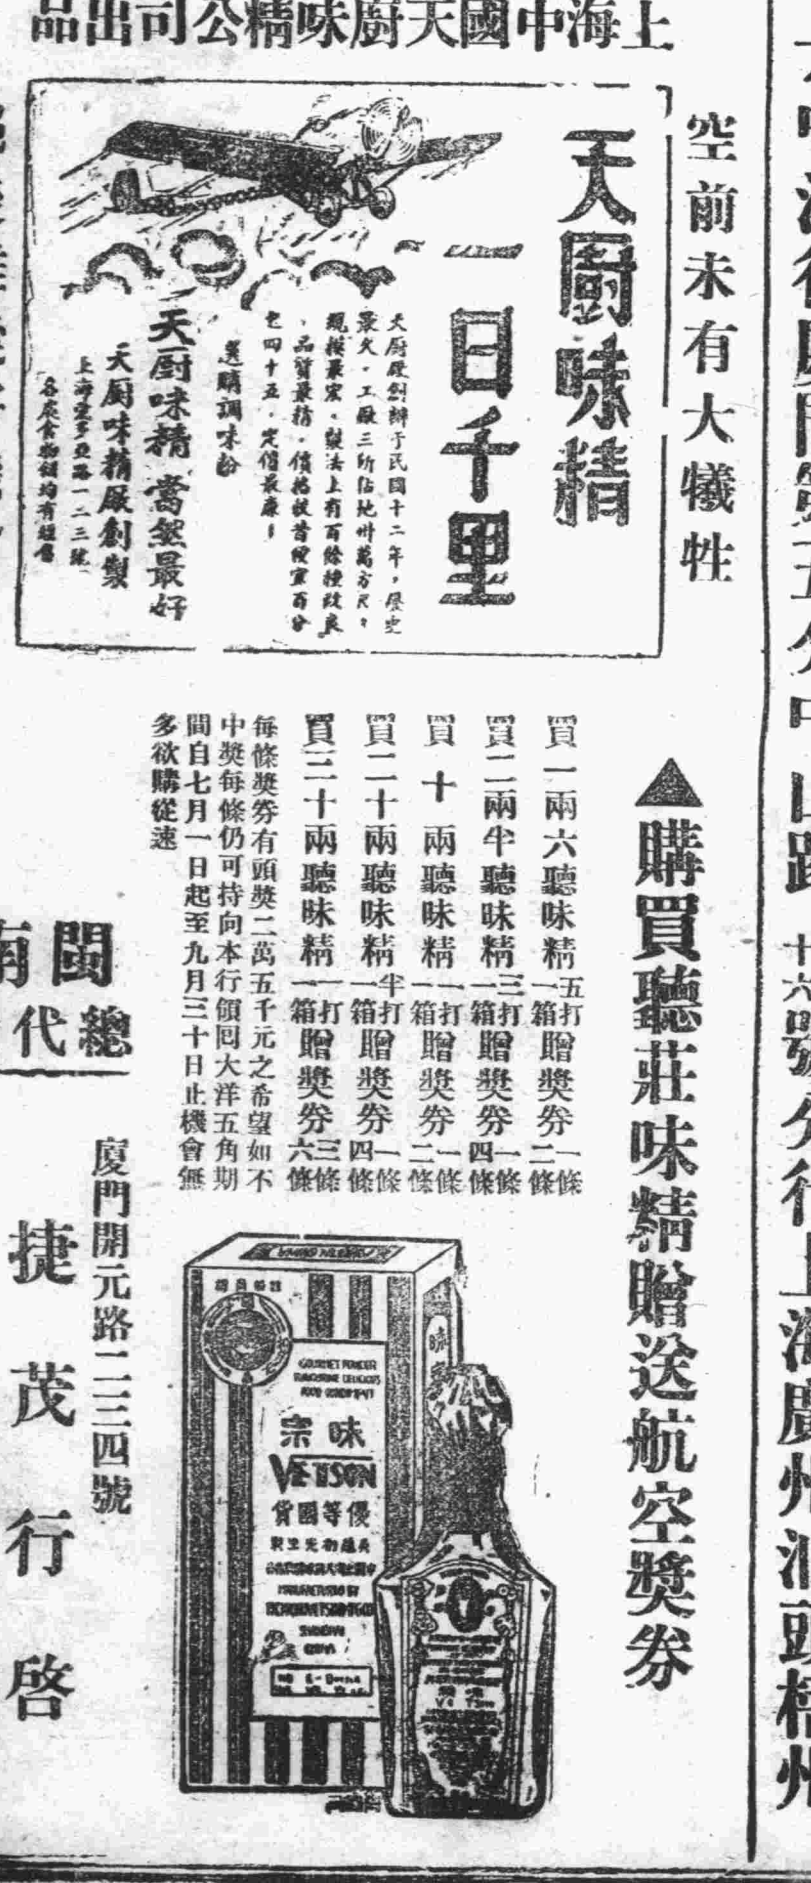 上海中國天廚味精公司出品
空前未有大犧牲
天廚味精
一日千里
天廚廠創辦于民國十二年，歷史
最久，工廠三所佔地卅萬方尺，
規模最宏。製法上有百餘種改良
，品質最精。價格較昔便宜百分
之四十五，定價最廉！
選購調味粉
天廚味精 當然最好
天廚味精廠創製
上海愛多亞路一二三號
各大食物號均有經售
▲購買聽莊味精贈送航空獎券
買一兩六聽味精五打一箱贈獎券一條二條
買二兩半聽味精三打一箱贈獎券一條四條
買十兩聽味精一打一箱贈獎券一條二條
買二十兩聽味精半打一箱贈獎券一條四條
買三十兩聽味精一打一箱贈獎券三條六條
每條獎券有頭獎二萬五千元之希望如不
中獎每條仍可持向本行領回大洋五角期
間自七月一日起至九月三十日止機會無
多欲購從速
閩南
總代
廈門開元路二三四號
捷茂行啓
GOURMET POWDER
味宗
VE-TSON
優等國貨
MANUFACTURED BY
SHANGHAI
CHINA
十六號分行上海廣州汕頭梧州